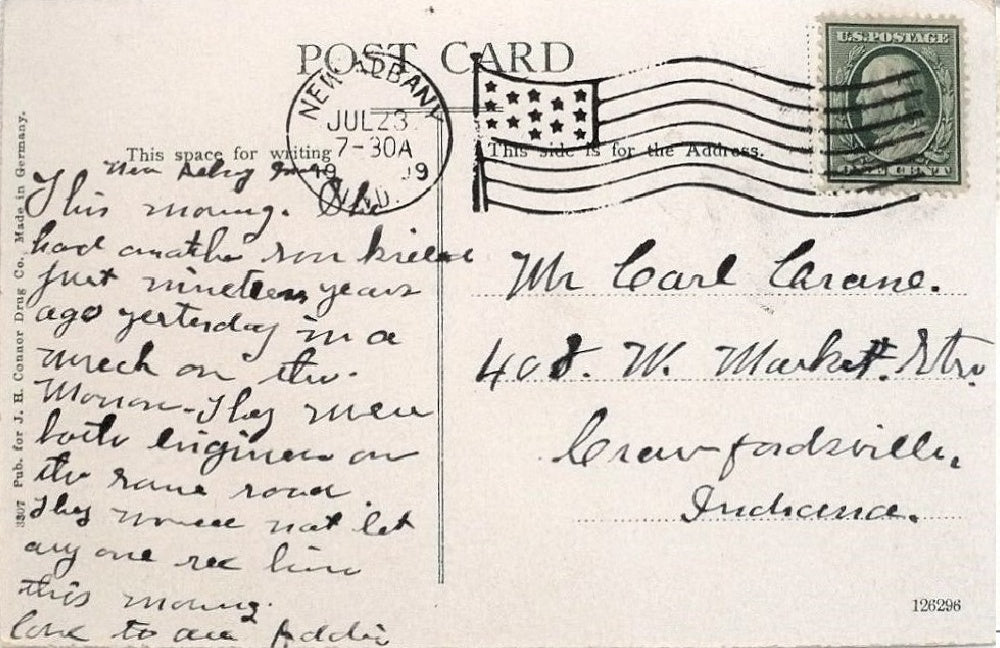 POST CARD
NEW ALBANY
JUL 23
7-30A
19 09
IND.
U.S. POSTAGE
ONE CENT
This space for writing
This side is for the Address.
3307 Pub. for J. H. Connor Drug Co., Made in Germany.
New
This morning.
had another son killed
just nineteen years
ago yesterday in a
wreck on the
Monon. They were
both engineers on
the same road.
They would not let
any one see him
this morning.
love to all
Mr Carl Crane.
408. W. Market. Str.
Crawfordsville,
Indiana.
126296